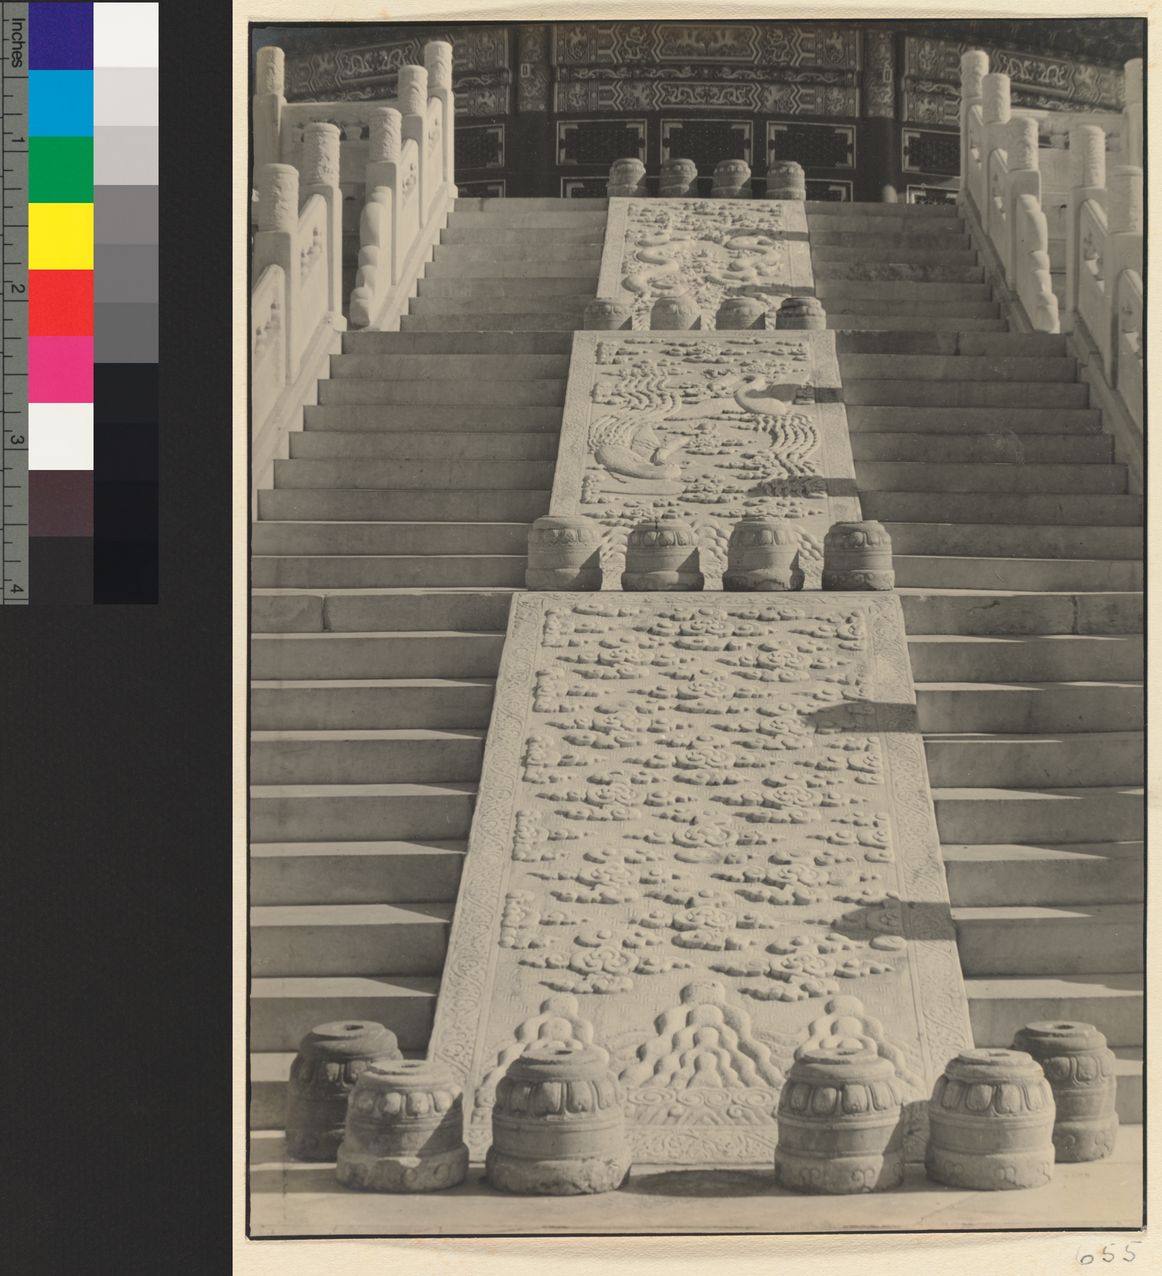 Inches
1
2
3
4
655